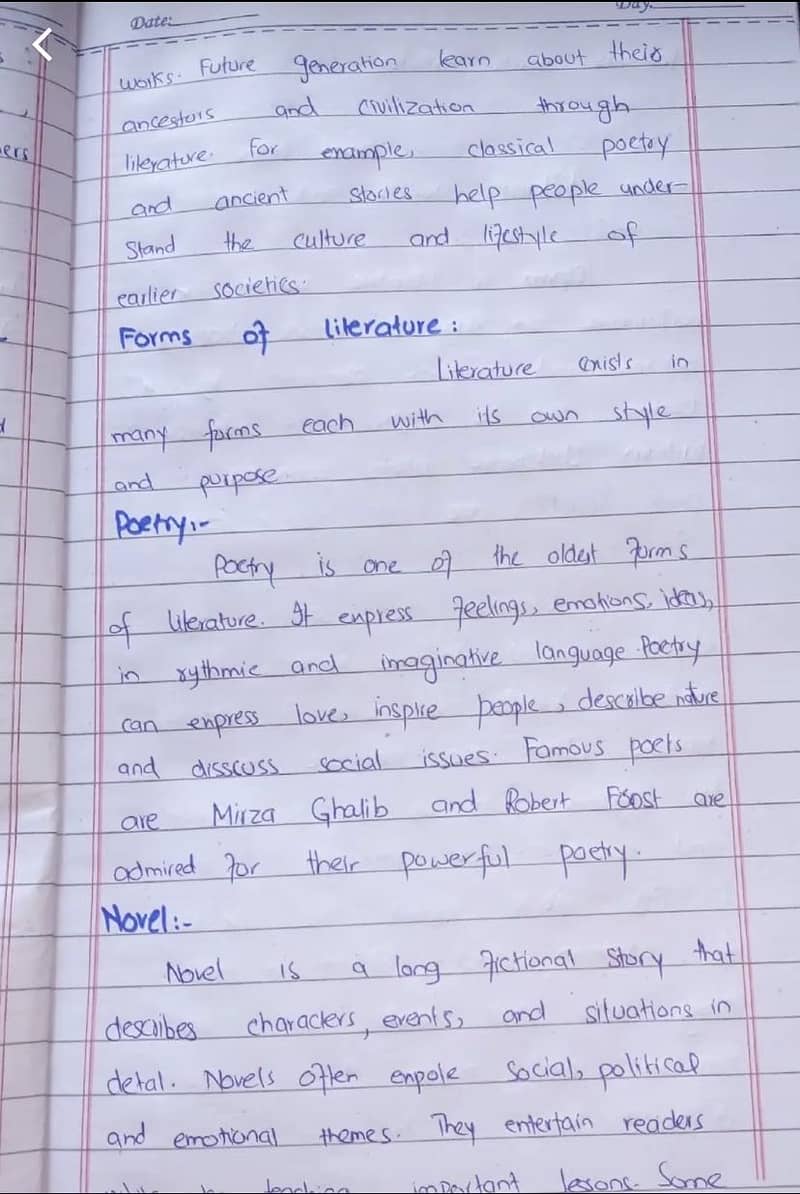 Date:
Day:
works. Future generation learn about their
ancestors and civilization through
literature. For enample, classical poetry
and ancient stories help people under-
Stand the culture and lifestyle of
earlier societies.
Forms of literature:
Literature enists in
many forms each with its own style
and purpose.
Poetry:-
Poetry is one of the oldest forms
of literature. It enpress feelings, emotions, ideas,
in rythmic and imaginative language. Poetry
can enpress love, inspire people, describe nature
and disscuss social issues. Famous poets
are Mirza Ghalib and Robert Frost are
admired for their powerful poetry.
Novel:-
Novel is a long fictional story that
describes characters, events, and situations in
detal. Novels often enpole social, political
and emotional themes. They entertain readers
important lessons. Some
ers